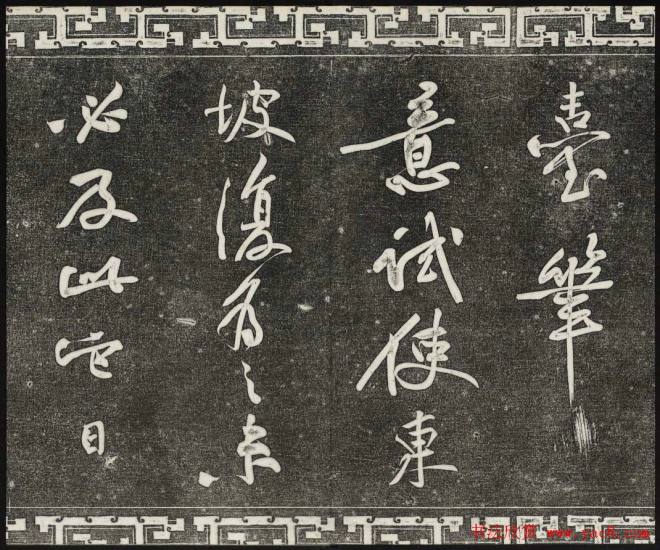 臺筆
意試使東
坡復為之未
必及此它日
书法欣赏 www.yac8.com